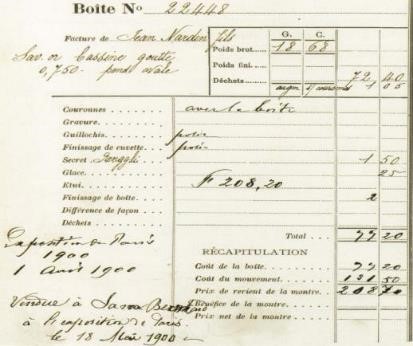 Boîte No 22448
Facture de Jean Nardin fils
G. C.
Poids brut 18 68
Sav. or Cassine goutte,
0,750 - ponds ovale
Poids fini
Déchets 72 40
1 05
Couronnes avec la boîte
Gravure
Guillochis polie
Finissage de cuvette polie
Secret 1 50
Glace 25
Etui F 208,20
Finissage de boîte 2
Différence de façon
Déchets
Exposition de Paris
1900
1 Avril 1900
Total 77 20
RÉCAPITULATION
Coût de la boîte 77 20
Coût du mouvement 131 50
Prix de revient de la montre 208 70
Vendue à Sara
Bénéfice de la montre
à l'exposition de Paris
Prix net de la montre
le 18 Mai 1900